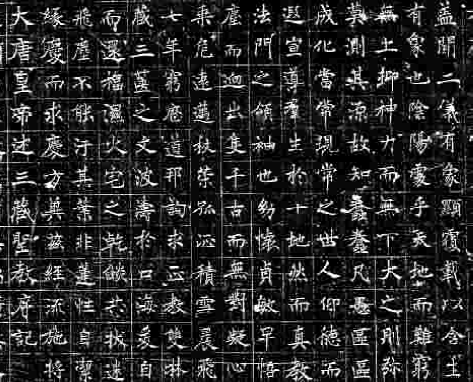 蓋聞二儀有象顯覆載以含生
有象也陰陽處乎天地而難窮
無上抑神力而無下大之則弥
莫測其源故知蠢蠢凡愚區區
成化當常現常之世人仰德而
遐宣導羣生於十地然而真教
法門之領袖也幼懷貞敏早悟
塵而迥出隻千古而無對凝心
乘危遠邁杖策孤征積雪晨飛
七年窮歷道邦詢求正教雙林
藏三篋之文波濤於口海爰自
而還福濕火宅之乾燄共拔迷
飛塵不能汙其葉非蓮性自潔
緣慶而求慶方冀茲經流施將
大唐皇帝述三藏聖教序記